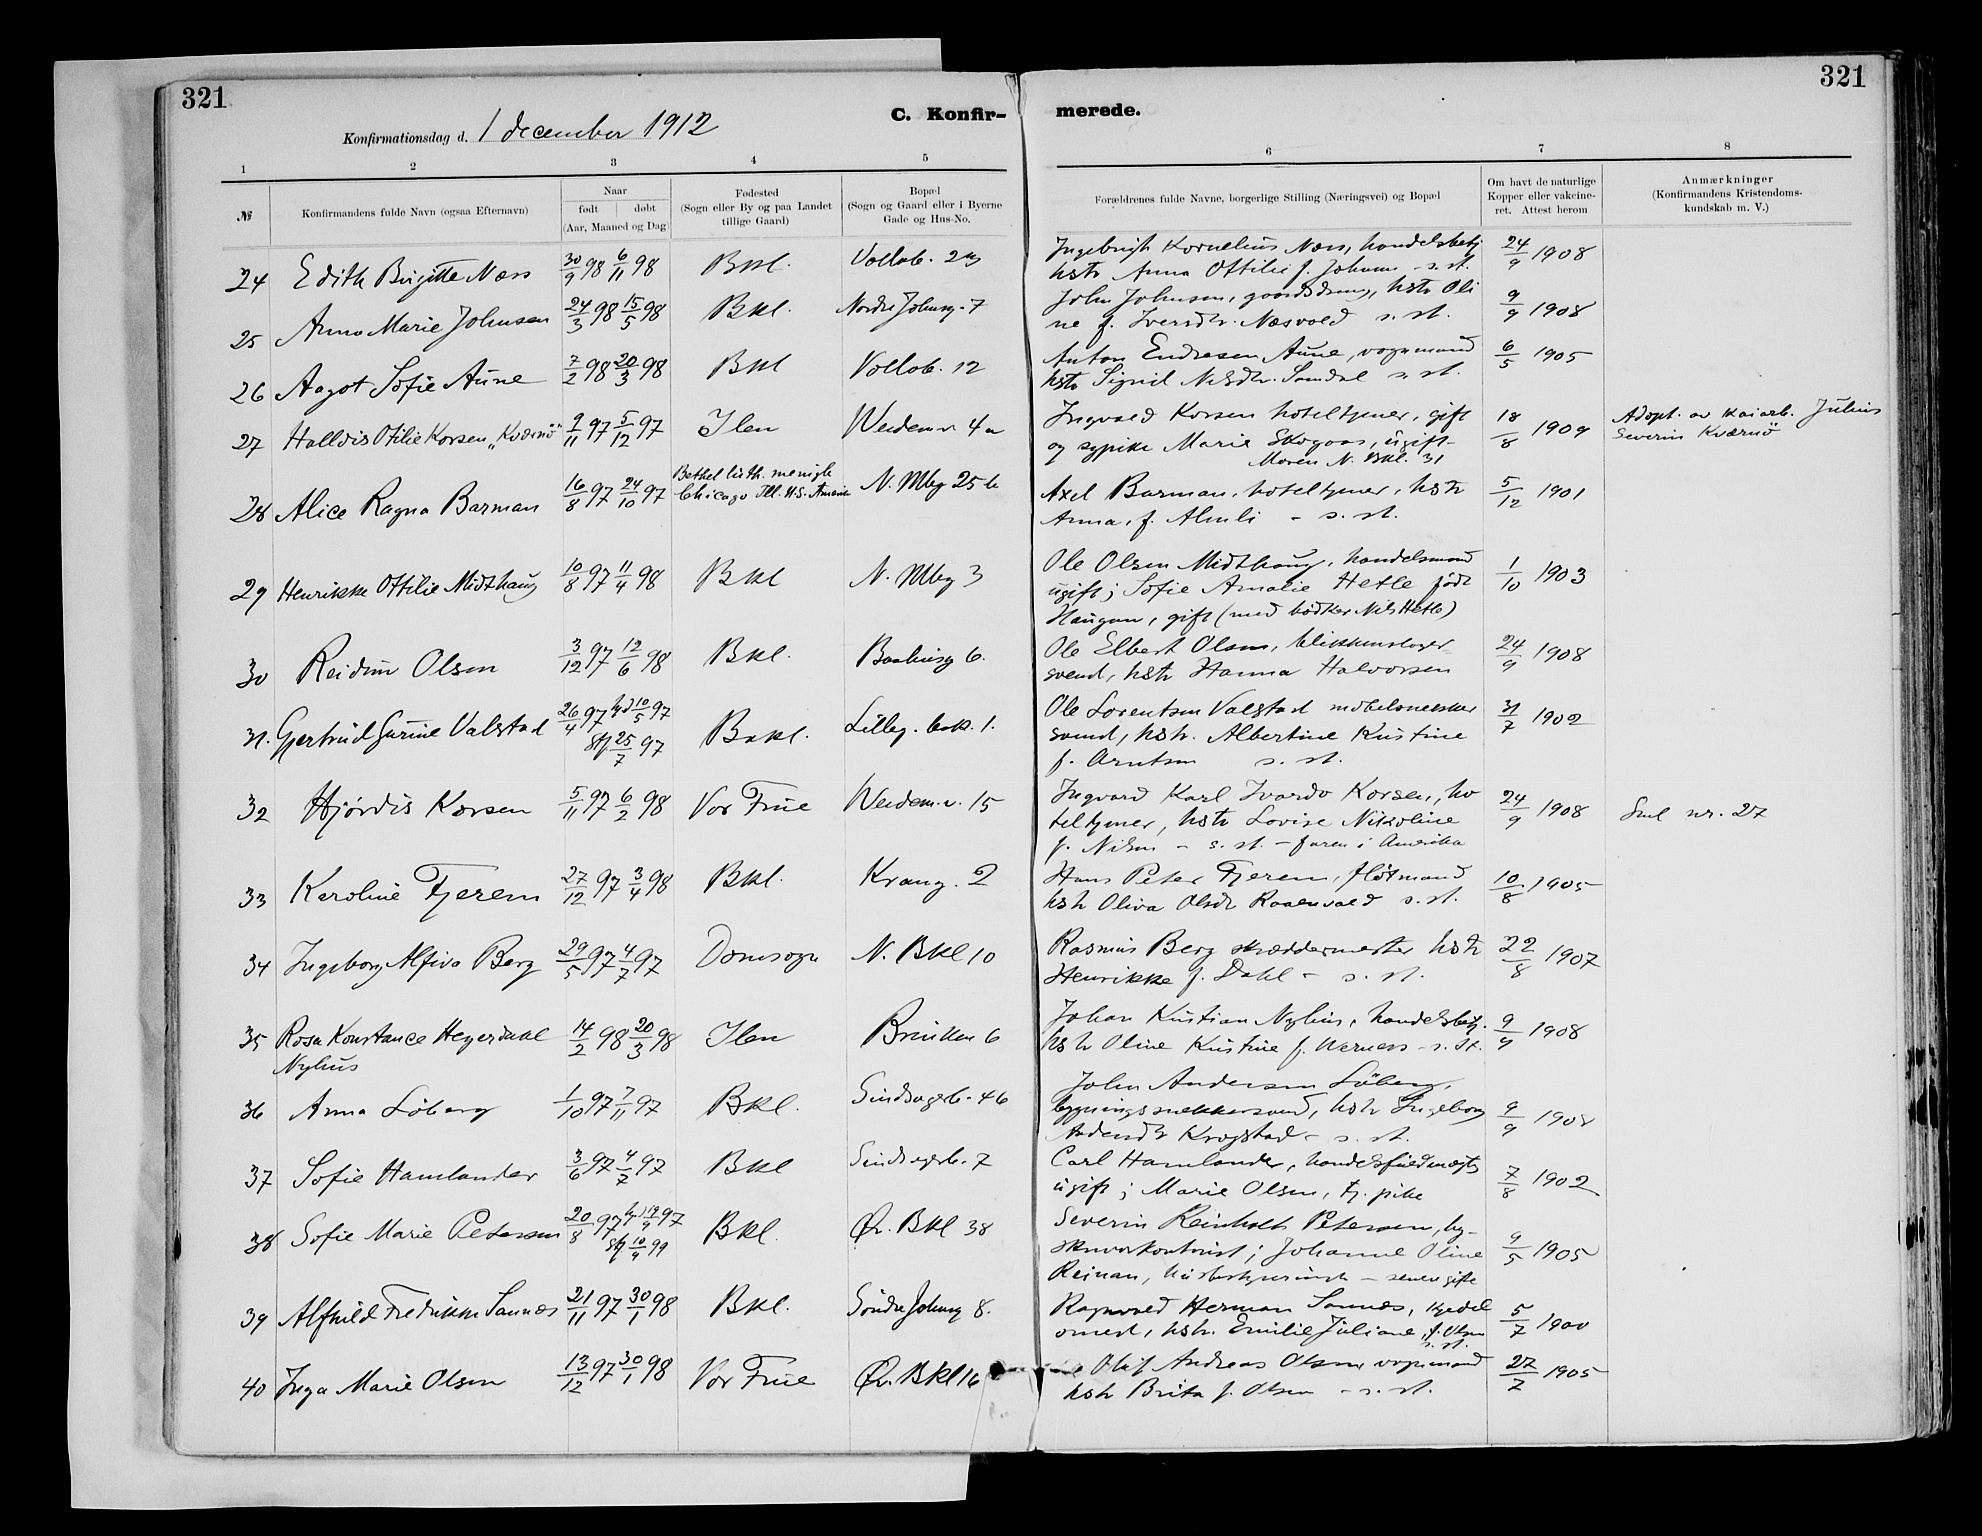 321
321
C. Konfir-
merede.
Konfirmationsdag d. 1 december 1912
1 2 3 4 5 6 7 8
№
Konfirmandens fulde Navn (ogsaa Efternavn)
Naar
født døbt
(Aar, Maaned og Dag)
Fødested
(Sogn eller By og paa Landet
tillige Gaard)
Bopæl
(Sogn og Gaard eller i Byerne
Gade og Hus-No.
Forældrenes fulde Navne, borgerlige Stilling (Næringsvei) og Bopæl
Om havt de naturlige
Kopper eller vakcine-
ret. Attest herom
Anmærkninger
(Konfirmandens Kristendoms-
kundskab m. V.)
24 Edith Birgitte Næss 30/9 98 6/11 98 Bkl. Vollab. 2 Ingebrigt Kornelius Næss, handelsbetj. 24/9 1908
hstr Anna Ottilie f. Johans - s. st.
25 Anna Marie Johnsen 24/3 98 15/5 98 Bkl. Nordre Johusg. 7 John Johnsen, gaardsdreng, hstr Oli 9/9 1908
ne f. Iversdtr. Næsvold s. st.
26 Aagot Sofie Aune 7/2 98 20/3 98 Bkl Vollab. 12 Anton Endresen Aune, vognmand 6/5 1905
hstr Sigrid Nilsdtr. Samdal s. st.
27 Halldis Otilie Korsen, "Kværnö" 9/11 97 5/12 97 Ilen Weidem.v. 4a Ingvald Korsen hoteltjener, gift 18/8 1909 Adopt. av kaiarb. Julius
og sypike Marie Skogaas, ugift- Severin Kværnö
Moren N. Bkl. 31
28 Alice Ragna Barman 16/8 97 24/10 97 Bethel luth. menigh. N. Mbg 25 b Axel Barman, hoteltjener, hstr 5/12 1901
Chicago Ill. U.S. Amerika Anna, f. Almli - s. st.
29 Henrikke Ottilie Midthaug 10/8 97 11/4 98 Bkl N. Mbg 3 Ole Olsen Midthaug, handelsmand 1/10 1903
ugift; Sofie Amalie Hetle född
Haugan, gift (med bödker Nils Hetle)
30 Reidun Olsen 3/12 97 12/6 98 Bkl. Baahusg 6. Ole Elbert Olsen, blikkenslager- 24/9 1908
svend, hstr Hanna Halvorsen
31. Gjertrud Gurine Valstad 26/4 97 hjd 10/5 97 Bakl. Lilleg. bak. 1. Ole Lorentsen Valstad möbelsnedker 31/7 1902
stf 25/7 97 svend, hstr. Albertine Kristine
f. Arntsen s. st.
32 Hjördis Korsen 5/11 97 6/2 98 Vor Frue Weidem.v. 15 Ingvard Karl Ivardo Korsen, ho 24/9 1908 Sml nr. 27
teltjener, hstr Lovise Nikoline
f. Nilsen - s. st. - faren i Amerika
33 Karoline Fjerem 27/12 97 3/4 98 Bkl. Krang. 2 Hans Peter Fjerem, flötmand 10/8 1905
hstr Oliva Olsdtr Raaenvold s. st.
34 Ingeborg Alfiva Berg 29/5 97 4/7 97 Domsogn N. Bkl 10 Rasmus Berg skræddermester hstr 22/8 1907
Henrikke f. Dahl - s. st.
35 Rosa Konstance Heyerdahl 14/2 98 20/3 98 Ilen Brinken 6 Johan Kristian Nyhus, handelsbetj. 9/9 1908
Nyhus hstr Oline Kristine f. Werness - s. st.
36 Anna Löberg 1/10 97 7/11 97 Bkl. Sindsagerb. 46 John Andersen Löberg,
bygningssnekkersvend, hstr Ingeborg 9/9 1908
Krogstad - s. st.
37 Sofie Hamlander 3/6 97 4/7 97 Bkl Sindsagerb. 7 Carl Hamlander, handelsfuldmægtig 7/8 1902
ugift; Marie Olsen, tj. pike
38 Sofie Marie Petersen 20/8 97 hjd 19/9 97 Bkl. Øv. Bkl 38 Severin Reinholt Petersen, by-
stf 10/9 99 skriverkontorist; Johanne Oline 9/5 1905
Reinan, husbestyrerinde - senere gifte
39 Alfhild Fredrikke Sannes 21/11 97 30/1 98 Bkl. Söndre Johusg 8. Ragnvald Herman Sannes, kjedel 5/7 1900
smed, hstr. Emilie Juliane, f. Olsen
s. st.
40 Inga Marie Olsen 13/12 97 30/1 98 Vor Frue Øv. Bkl 16 Oluf Andreas Olsen vognmand 27/7 1905
hstr Brita f. Olsen - s. st.